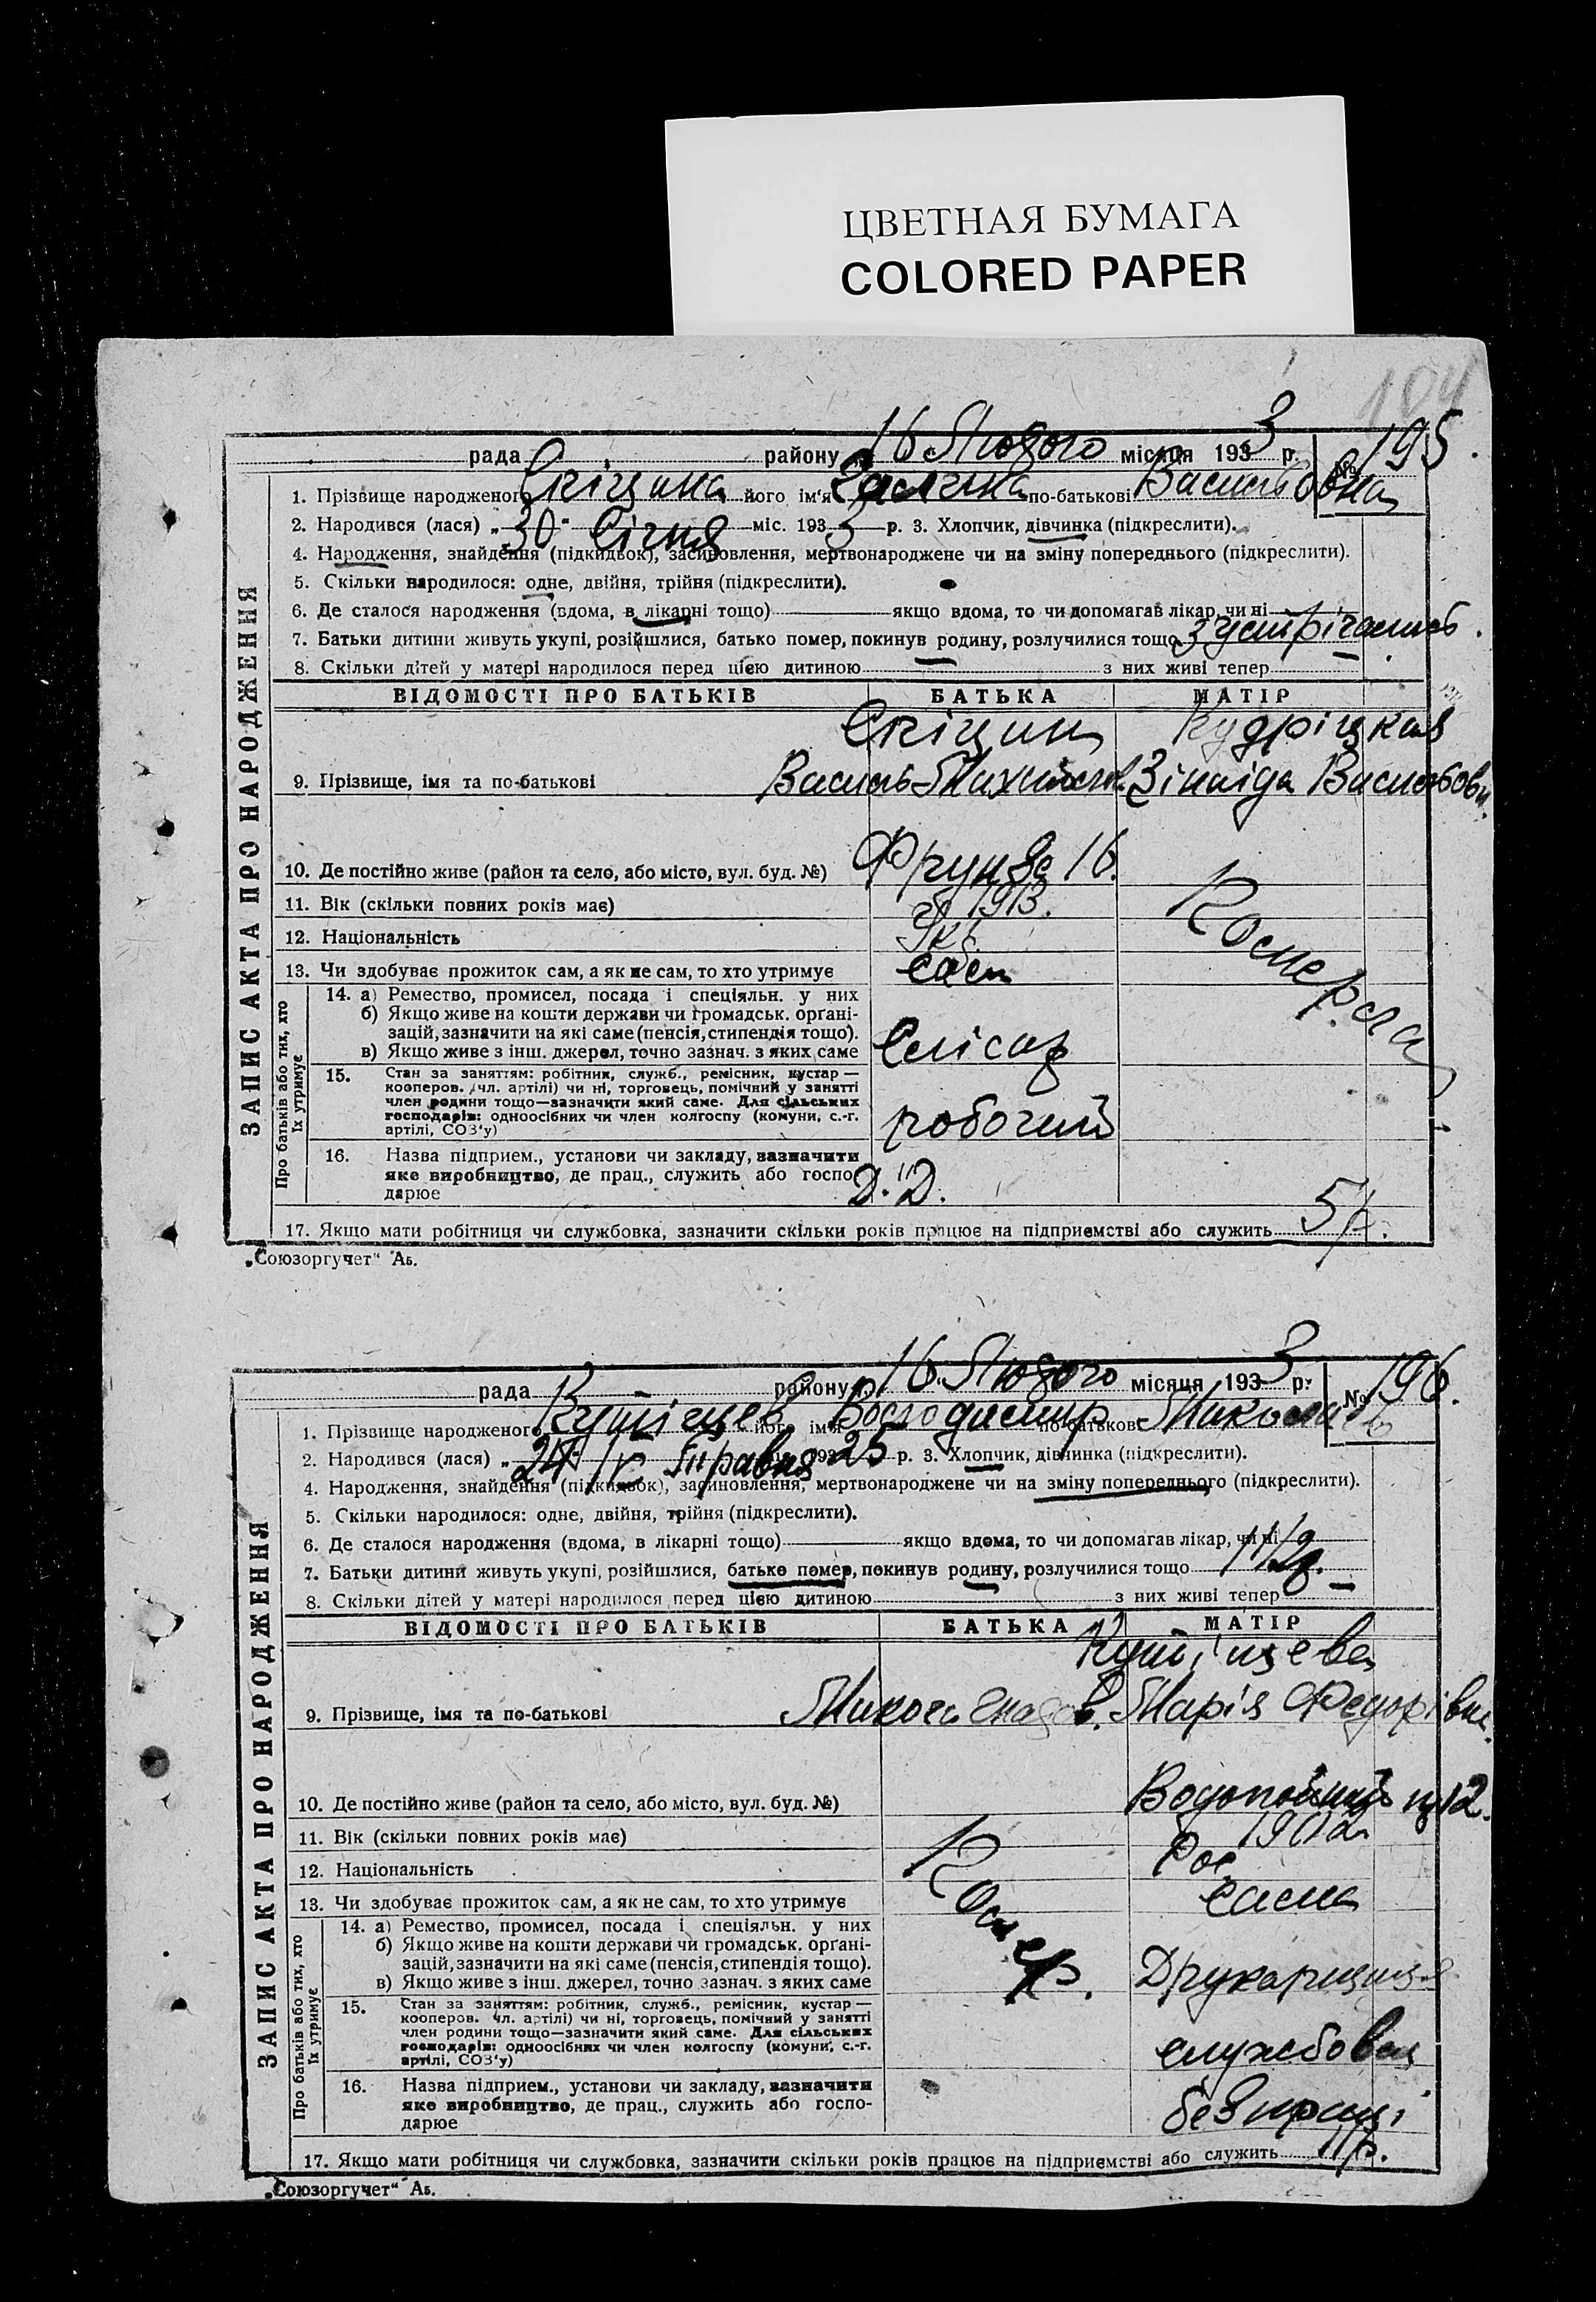 ЦВЕТНАЯ БУМАГА
COLORED PAPER
104
рада району 16 Лютого місяця 1933 р. № 195.
1. Прізвище народженого Скіцина його ім'я по-батькові Васильовна
2. Народився (лася) „30" Січня міс. 1933 р. 3. Хлопчик, дівчинка (підкреслити).
4. Народження, знайдення (підкидьок), засиновлення, мертвонароджене чи на зміну попереднього (підкреслити).
5. Скільки народилося: одне, двійня, трійня (підкреслити).
6. Де сталося народження (вдома, в лікарні тощо) якщо вдома, то чи допомагав лікар, чи ні
7. Батьки дитини живуть укупі, розійшлися, батько помер, покинув родину, розлучилися тощо зустрічались.
8. Скільки дітей у матері народилося перед цією дитиною — з них живі тепер —
ЗАПИС АКТА ПРО НАРОДЖЕННЯ
ВІДОМОСТІ ПРО БАТЬКІВ БАТЬКА МАТІР
Скіцин Кудріцкая
9. Прізвище, імя та по-батькові Василь Михийлов. Зінаіда Васильовн.
10. Де постійно живе (район та село, або місто, вул. буд. №) Фрунзе 16.
11. Вік (скільки повних років має) 1913.
12. Національність Укр.
13. Чи здобуває прожиток сам, а як не сам, то хто утримує сам
Про батьків або тих, хто їх утримує
14. а) Ремество, промисел, посада і спеціяльн. у них
б) Якщо живе на кошти держави чи громадськ. органі-
зацій, зазначити на які саме (пенсія, стипендія тощо).
в) Якщо живе з інш. джерел, точно зазнач. з яких саме Слісар
15. Стан за заняттям: робітник, служб., ремісник, кустар —
кооперов. (чл. артілі) чи ні, торговець, помічний у занятті
член родини тощо—зазначити який саме. Для сільських
господарів: одноосібних чи член колгоспу (комуни, с.-г.
артілі, СОЗ'у) робочий
16. Назва підприєм., установи чи закладу, зазначити
яке виробництво, де прац., служить або госпо-
дарює Д.Д.
17. Якщо мати робітниця чи службовка, зазначити скільки років працює на підприємстві або служить 5 р.
„Союзоргучет" Аб.
рада району 16 Лютого місяця 1933 р. № 196.
1. Прізвище народженого Кутінцев його ім'я Володимир по-батькові
2. Народився (лася) „ Травня 1925 р. 3. Хлопчик, дівчинка (підкреслити).
4. Народження, знайдення (підкидьок), засиновлення, мертвонароджене чи на зміну попереднього (підкреслити).
5. Скільки народилося: одне, двійня, трійня (підкреслити).
6. Де сталося народження (вдома, в лікарні тощо) якщо вдома, то чи допомагав лікар, чи ні
7. Батьки дитини живуть укупі, розійшлися, батько помер, покинув родину, розлучилися тощо
8. Скільки дітей у матері народилося перед цією дитиною з них живі тепер —
ЗАПИС АКТА ПРО НАРОДЖЕННЯ
ВІДОМОСТІ ПРО БАТЬКІВ БАТЬКА МАТІР
Кутінцева
9. Прізвище, імя та по-батькові Марія Федорівна
10. Де постійно живе (район та село, або місто, вул. буд. №) 12.
11. Вік (скільки повних років має) 1902
12. Національність Рос.
13. Чи здобуває прожиток сам, а як не сам, то хто утримує сама
Про батьків або тих, хто їх утримує
14. а) Ремество, промисел, посада і спеціяльн. у них
б) Якщо живе на кошти держави чи громадськ. органі-
зацій, зазначити на які саме (пенсія, стипендія тощо).
в) Якщо живе з інш. джерел, точно зазнач. з яких саме Друкарщиця
15. Стан за заняттям: робітник, служб., ремісник, кустар —
кооперов. чл. артілі) чи ні, торговець, помічний у занятті
член родини тощо—зазначити який саме. Для сільських
господарів: одноосібних чи член колгоспу (комуни, с.-г.
артілі, СОЗ'у) службовка
16. Назва підприєм., установи чи закладу, зазначити
яке виробництво, де прац., служить або госпо-
дарює без праці
17. Якщо мати робітниця чи службовка, зазначити скільки років працює на підприємстві або служить 11 р.
„Союзоргучет" Аб.